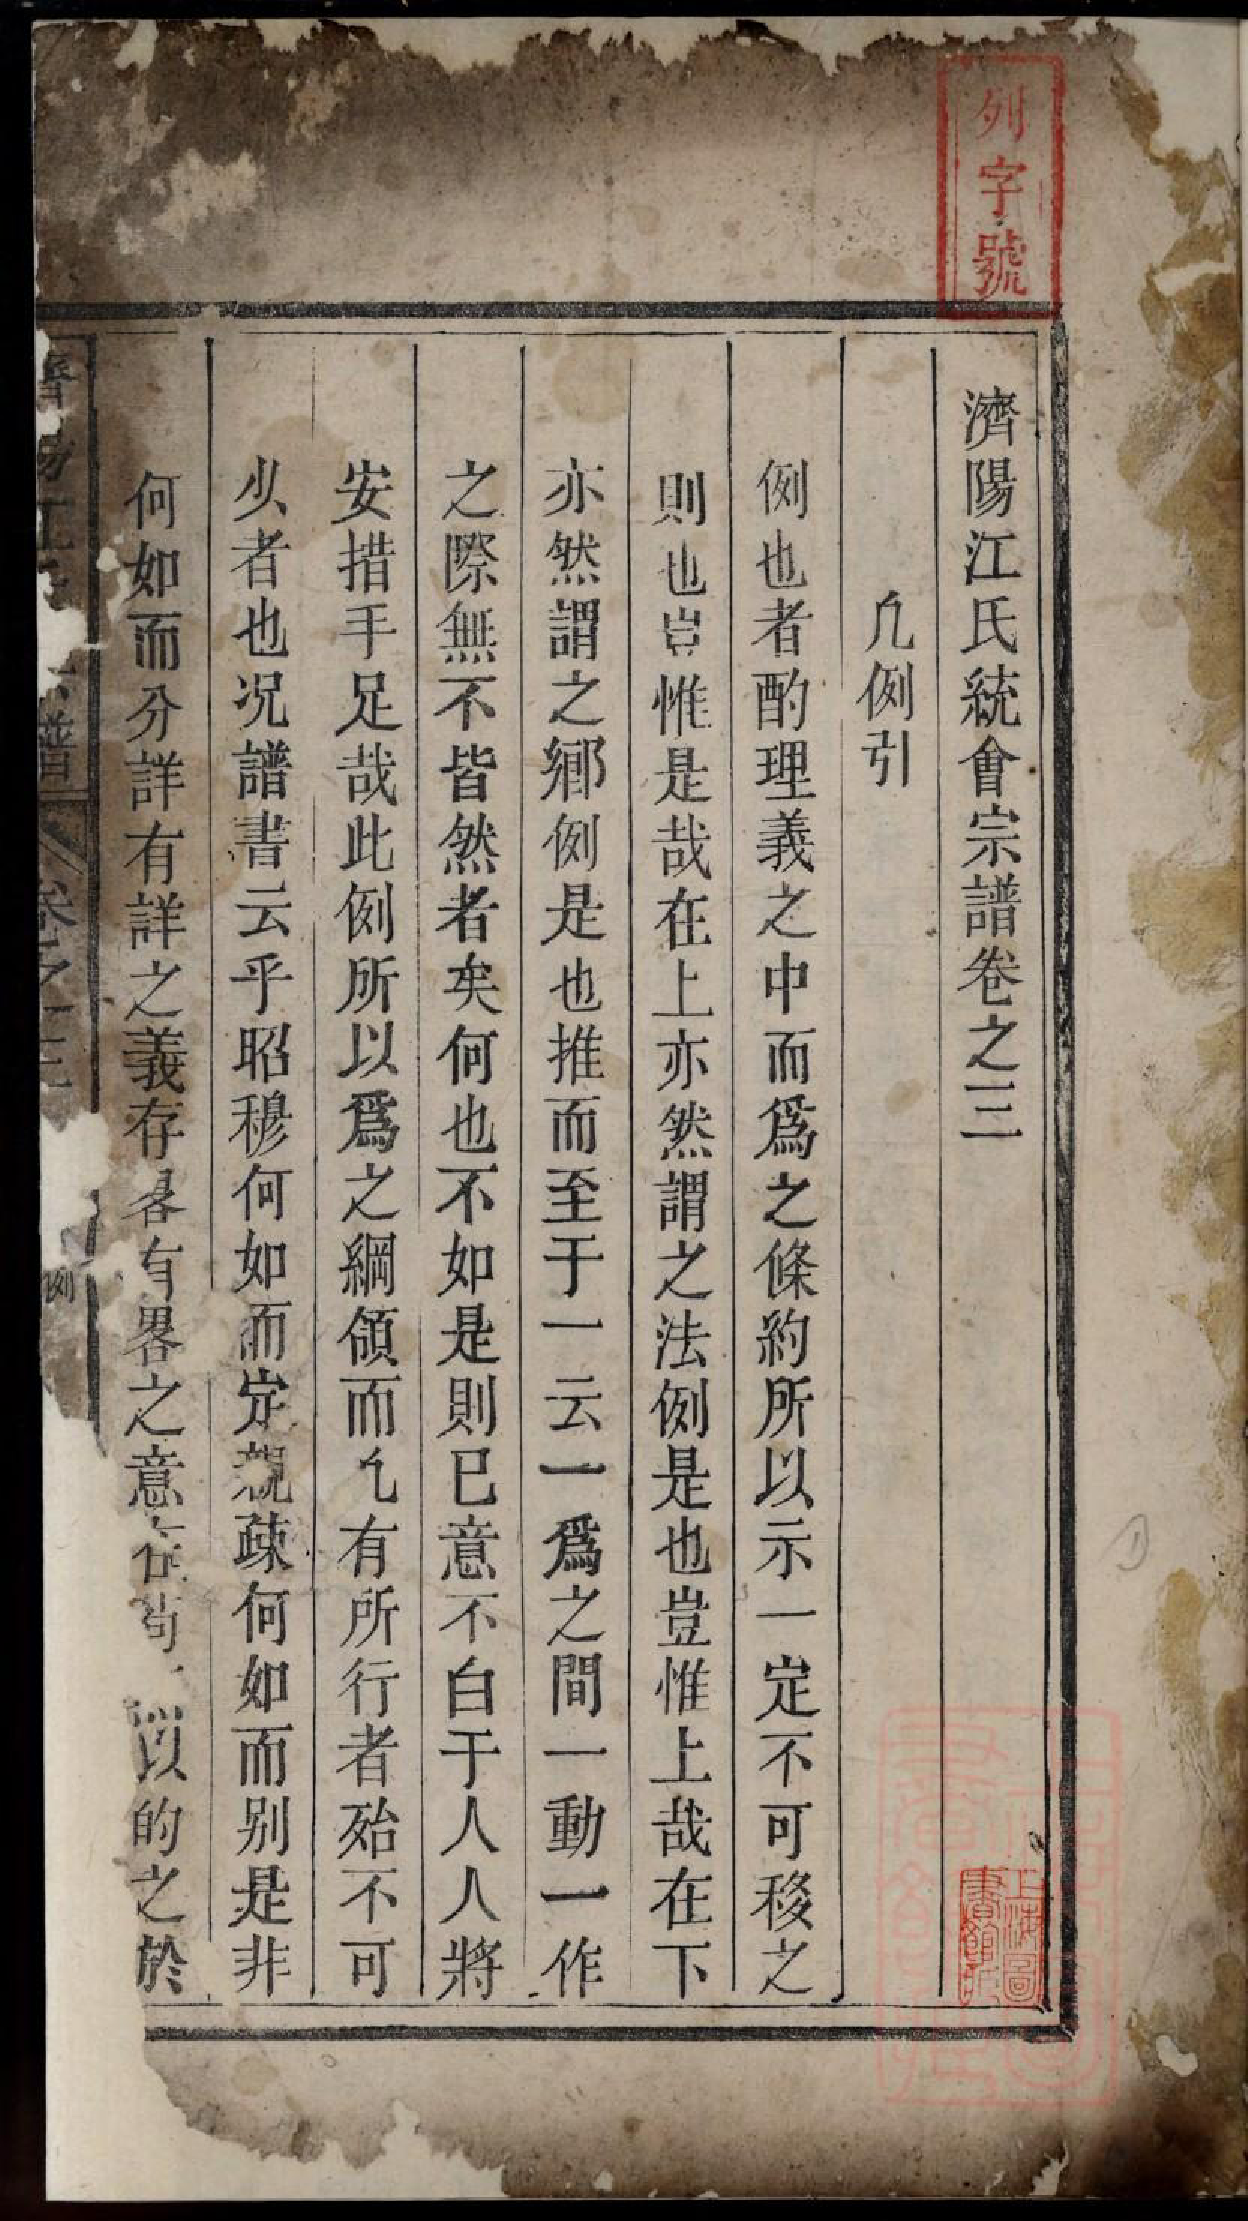 列字號
濟陽江氏統會宗譜卷之三
凡例引
例也者酌理義之中而爲之條約所以示一定不可移之
則也豈惟是哉在上亦然謂之法例是也豈惟上哉在下
亦然謂之鄉例是也推而至于一云一爲之間一動一作
之際無不皆然者矣何也不如是則已意不白于人人將
安措手足哉此例所以爲之綱領而凢有所行者殆不可
少者也况譜書云乎昭穆何如而定親疎何如而别是非
何如而分詳有詳之義存畧有畧之意在苟以的之於
上海圖書館所
江
譜
卷之三
例